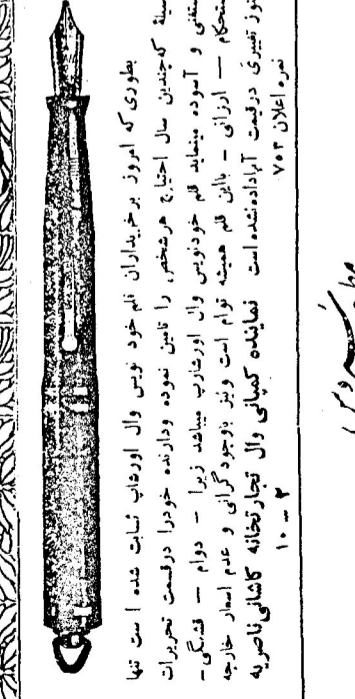 بطوری که امروز برخریداران قلم خود نویس وال اورشاپ ثابت شده است تنها
که چندین سال احتیاج هرشخص را تامین نموده ودارنده خودرا درقسمت تحریرات
و آسوده مینماید قلم خودنویس وال اورشارپ میباشد زیرا – دوام – قشنگی –
– ارزانی – بااین قلم همیشه توام است ونیز باوجود گرانی و عدم اسعار خارجه
تغییری درقیمت آنهاداده نشده است نماینده کمپانی وال تجارتخانه کاشانی ناصریه
نمره اعلان ۷۵۳
۱۰ – ۳